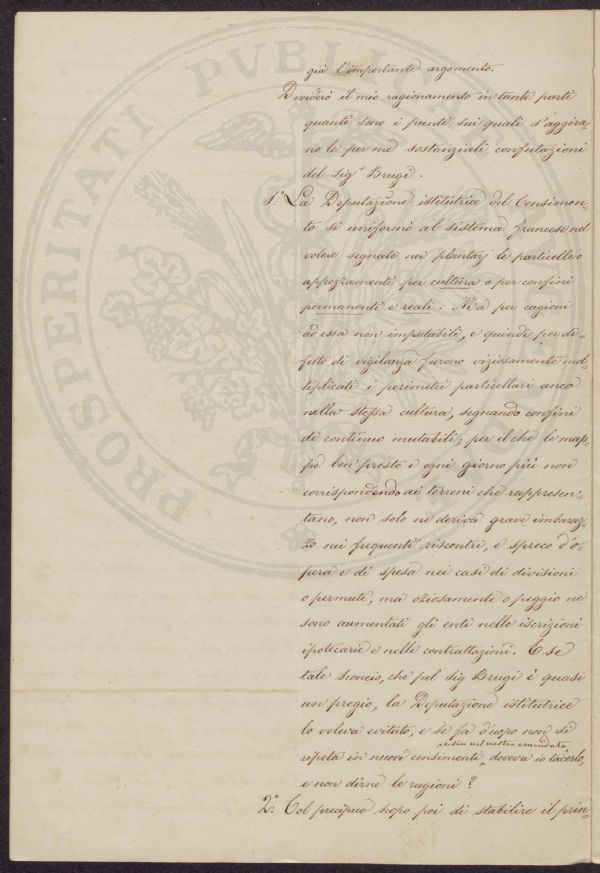 già l'importante argomento.
Dividerò il mio ragionamento in tante parti
quanti sono i punti sui quali s'aggira-
no le per me sostanziali confutazioni
del Sigr Brugi.
1.° La Deputazione istitutrice del Censimen-
to si uniformò al sistema francese nel
volere segnato nei plantarj le particelle o
appezzamenti per cultura o per confini
permanenti e reali. Ma per cagioni
ad essa non imputabili, e quindi per di-
fetto di vigilanza furono viziosamente mol-
tiplicati i perimetri particellari anco
nella stessa cultura, segnando confini
di continuo mutabili; per il che le map-
pe ben presto e ogni giorno più non
corrispondendo ai terreni che rappresen-
tano, non solo ne deriva grave imbaraz-
zo nei frequenti riscontri, e spreco d'o-
pera e di spesa nei casi di divisioni
o permute, ma oziosamente o peggio ne
sono aumentati gli enti nelle iscrizioni
ipotecarie e nelle contrattazioni. E se
tale sconcio, che pel sig Brugi è quasi
un pregio, la Deputazione istitutrice
lo voleva evitato, e se fa d'uopo non si
e sia nel nostro emendato
ripeta in nuovi censimenti, doveva io tacerlo,
e non dirne le ragioni?
2.° Col precipuo scopo poi di stabilire il prin-
PROSPERITATI PVBLI